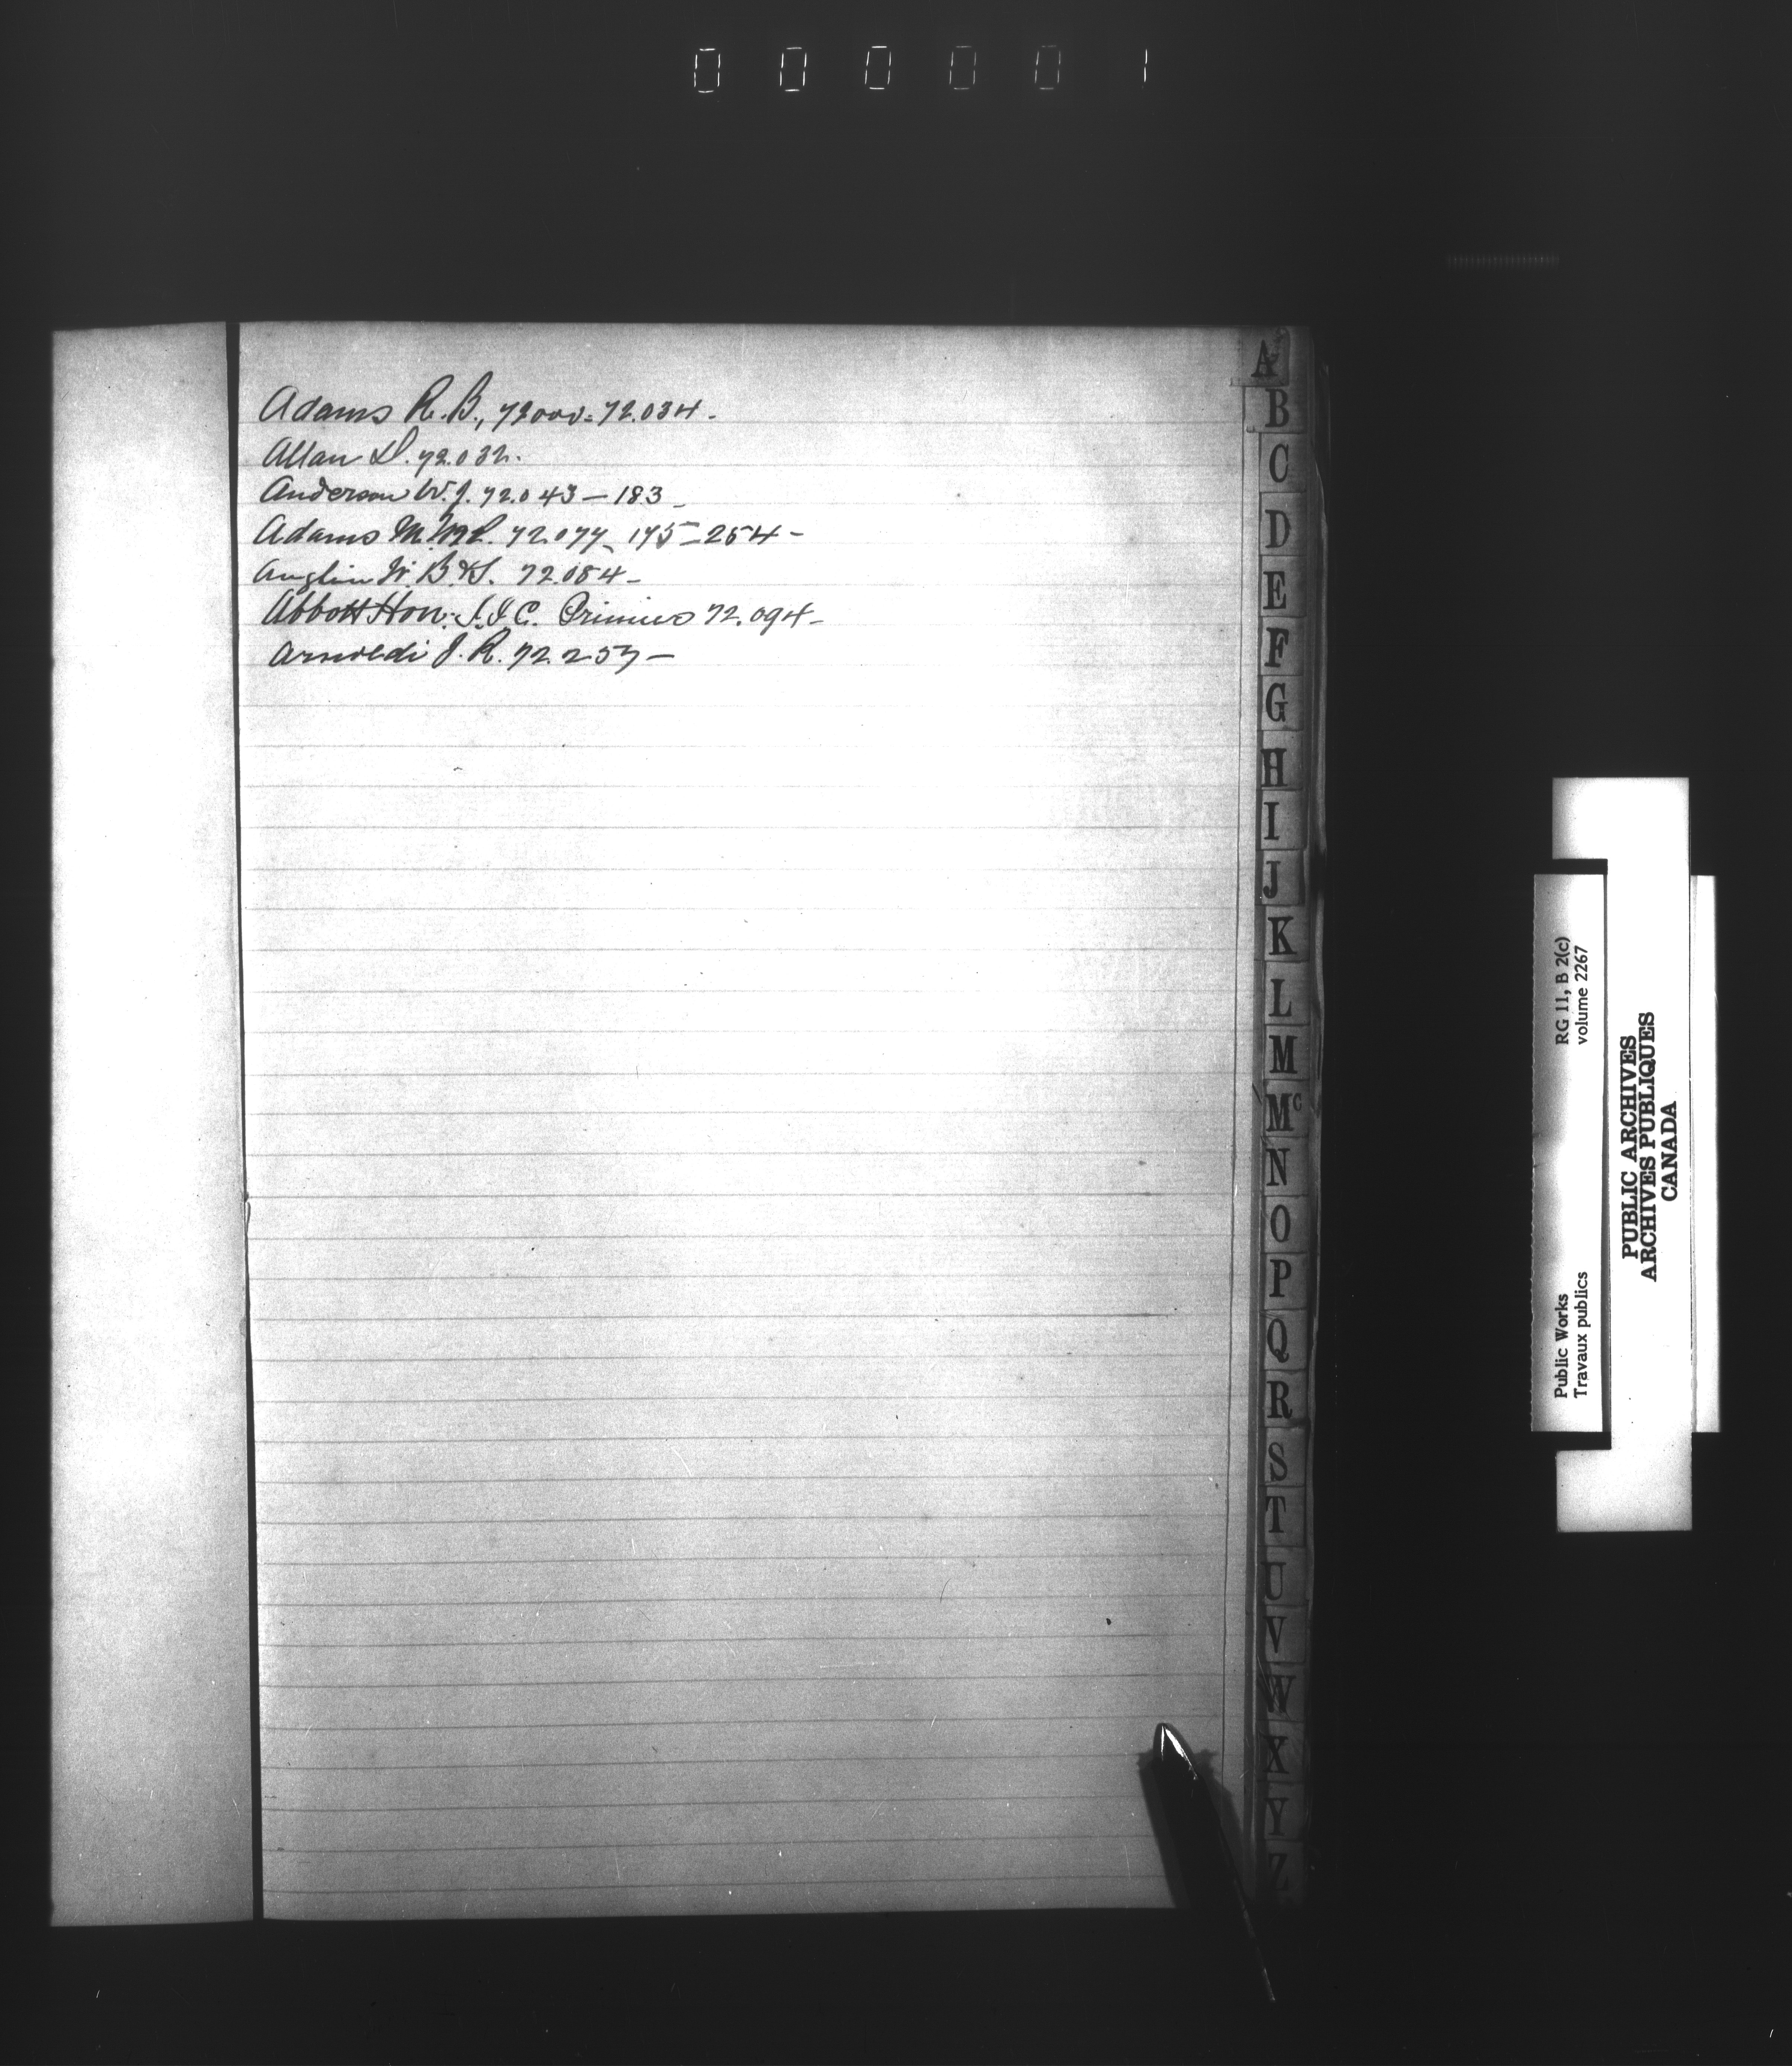 000001
Adams R. B., 72000 = 72.034 -
Allan D. 72.032.
Anderson W. J. 72.043 - 183 -
Adams M. 72.077 - 175 - 254 -
Anglin W. B. & S. 72.084 -
Abbott Hon. J. J. C. 72.094 -
Arnoldi J. R. 72.257 -
A
B
C
D
E
F
G
H
I
J
K
L
M
Mc
N
O
P
Q
R
S
T
U
V
W
X
Y
Z
Public Works RG 11, B 2(c)
Travaux publics volume 2267
PUBLIC ARCHIVES
ARCHIVES PUBLIQUES
CANADA